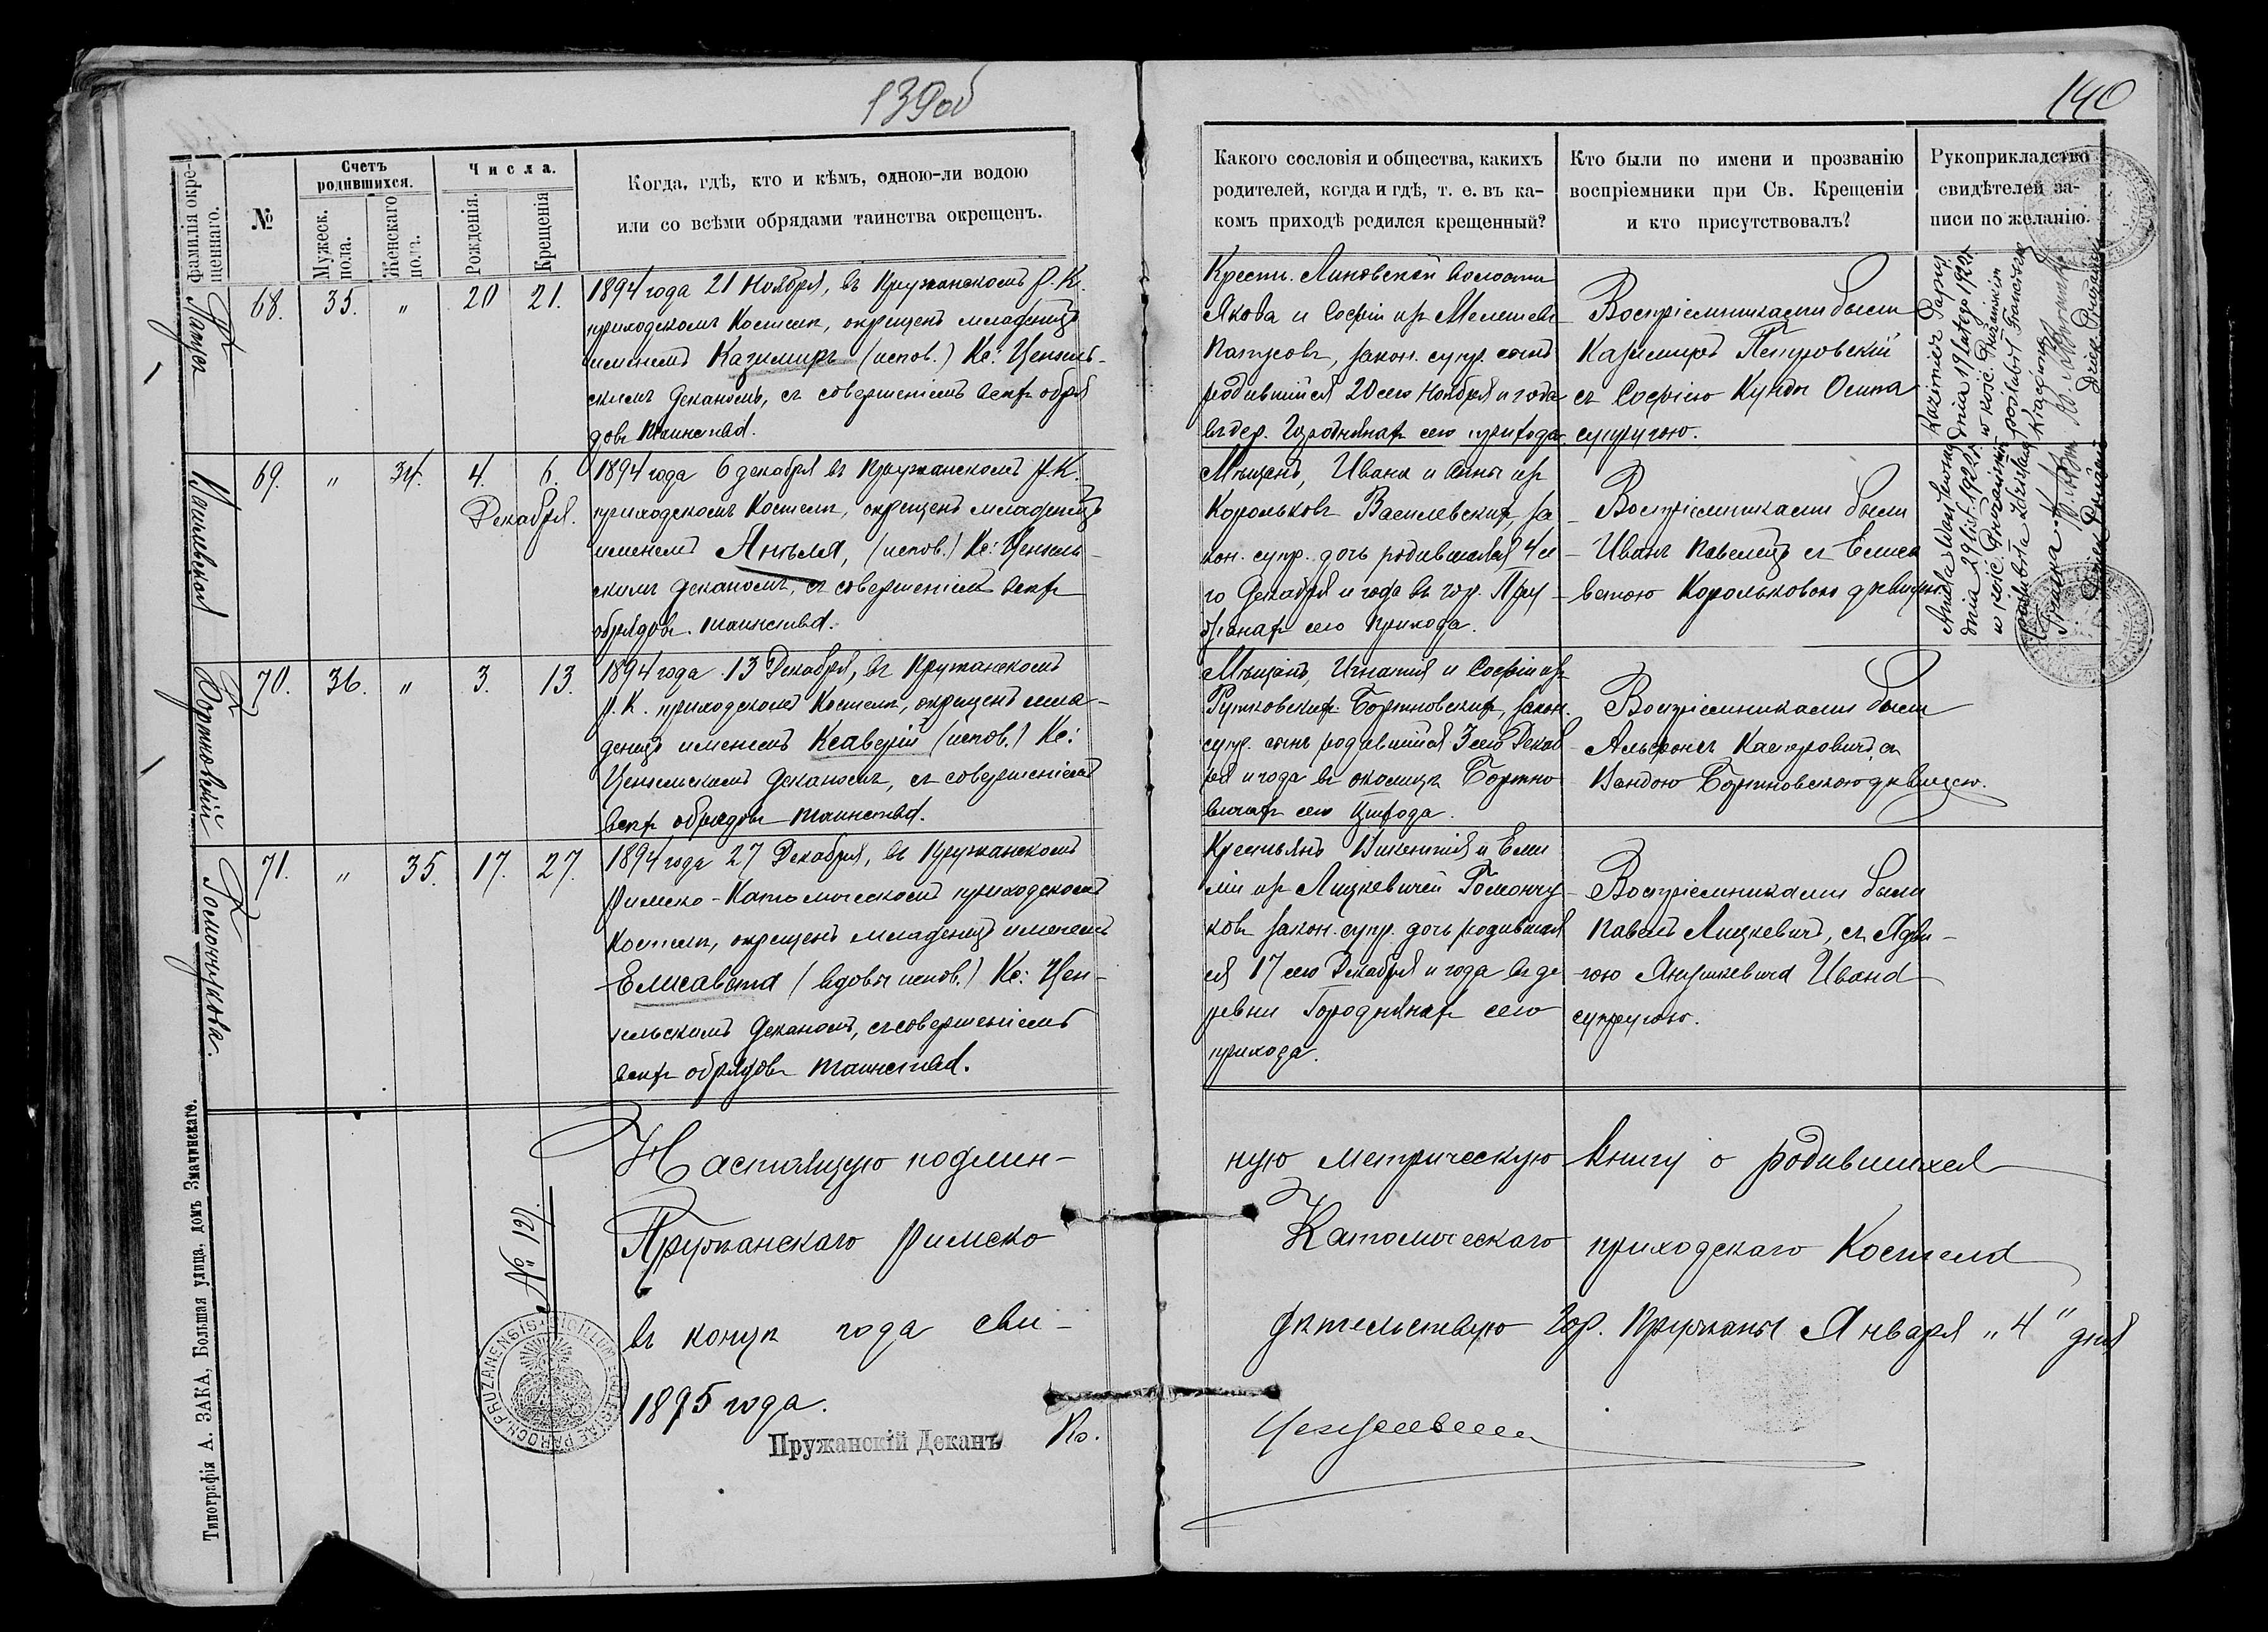 139об
140
Фамилія окре-
щеннаго.
№
Счетъ
родившихся.
Мужеск.
пола.
Женскаго
пола.
Числа.
Рожденія.
Крещенія
Когда, гдѣ, кто и кѣмъ, одною-ли водою
или со всѣми обрядами таинства окрещенъ.
Какого сословія и общества, какихъ
родителей, когда и гдѣ, т. е. въ ка-
комъ приходѣ родился крещенный?
Кто были по имени и прозванію
воспріемники при Св. Крещеніи
и кто присутствовалъ?
Рукоприкладство
свидѣтелей за-
писи по желанію.
68. 35. „ 20 21.
1894 года 21 Ноября, въ Пружанскомъ Р. К.
приходскомъ Костелѣ, окрещенъ младенецъ
именемъ Казимиръ (испов.) Кс:
скимъ Деканомъ, съ совершеніемъ всѣхъ обря
довъ таинства.
Крестьн. Линовской волости
Якова и Софіи изъ
закон. супр. сынъ
родившійся 20 сего Ноября и года
въ дер. Городнянахъ сего прихода
Воспріемниками были
Казимиръ Петровскій
съ Софіею Кунды Осипа
супругою.
Kazimierz
dnia 19 lutego 192
w kośc. Prużańskim
poślubił Franciszkę
Василевская
69. „ 34. 4. 6.
Декабря.
1894 года 6 декабря въ Пружанскомъ Р. К.
приходскомъ Костелѣ, окрещенъ младенецъ
именемъ Ангеля, (испов.) Кс:
скимъ Деканомъ, съ совершеніемъ всѣхъ
обрядовъ таинства.
Мѣщанъ, Ивана и Анны изъ
Корольковъ Василевскихъ за
кон. супр. дочь родившаяся 4 се
го Декабря и года въ гор. Пру
жанахъ сего прихода.
Воспріемниками были
Иванъ Павелецъ съ Елиса
ветою Корольковою дѣвицею.
Aniela
w kośc. Prużańskim
poślubiła
Бортновскій
70. 36. „ 3. 13.
1894 года 13 Декабря, въ Пружанскомъ
Р. К. приходскомъ Костелѣ, окрещенъ мла-
денецъ именемъ Ксаверій (испов.) Кс:
Деканомъ, съ совершеніемъ
всѣхъ обрядовъ таинства.
Мѣщанъ, Игнатія и Софіи изъ
Рутковскихъ Бортновскихъ, закон.
супр. сынъ родившійся 3 сего Декаб
ря и года въ околицѣ Бортно
вичахъ сего прихода.
Воспріемниками были
Альфонсъ съ
Вандою Бортновскою дѣвицею.
Гомончукова.
71. „ 35. 17. 27.
1894 года 27 Декабря, въ Пружанскомъ
Римско-Католическомъ приходскомъ
Костелѣ, окрещенъ младенецъ именемъ
Елисавета (испов.) Кс: Цен-
зельскимъ Деканомъ, съ совершеніемъ
всѣхъ обрядовъ таинства.
Крестьянъ Викентія и Еми
ліи изъ Лицкевичей Гомончу
ковъ закон. супр. дочь родившая
ся 17 сего Декабря и года въ де
ревни Городнянахъ сего
прихода.
Воспріемниками были
Павелъ Лицкевичъ, съ Ядви-
гою Янушкевича Ивана
супругою.
Настоящую подлин-
ную метрическую книгу о родившихся
Пружанскаго Римско
Католическаго приходскаго Костела
въ концѣ года сви-
дѣтельствую Гор. Пружаны Января „4“ дня
1895 года.
№ 127.
Пружанскій Деканъ Кс.
SIGILLUM ECCLESIAE PAROCH. PRUZANENSIS
Типографія А. ЗАКА, Большая улица, домъ Змачинскаго.